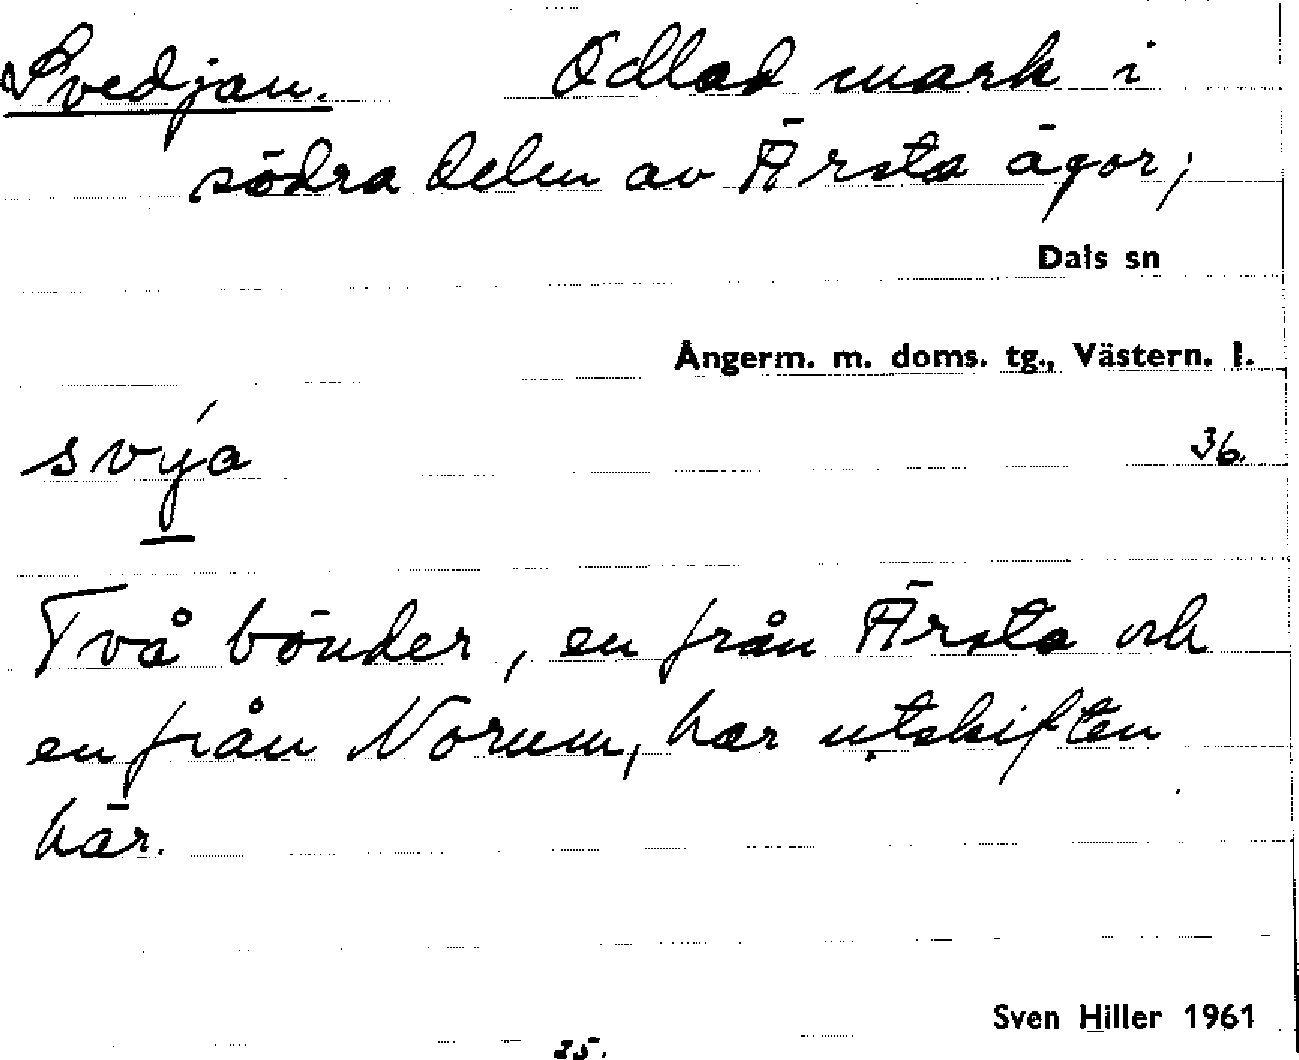 Svedjan. Odlad mark i
södra delen av Ärsta ägor;
Dals sn
Ångerm. m. doms. tg., Västern. l.
svýa 36.
Två bönder, en från Ärsta och
en från Norum, har utskiften
här.
Sven Hiller 1961
25.